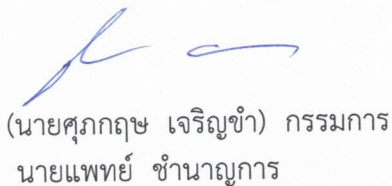 (นายศุภกฤษ เจริญขำ) กรรมการ
นายแพทย์ ชำนาญการ